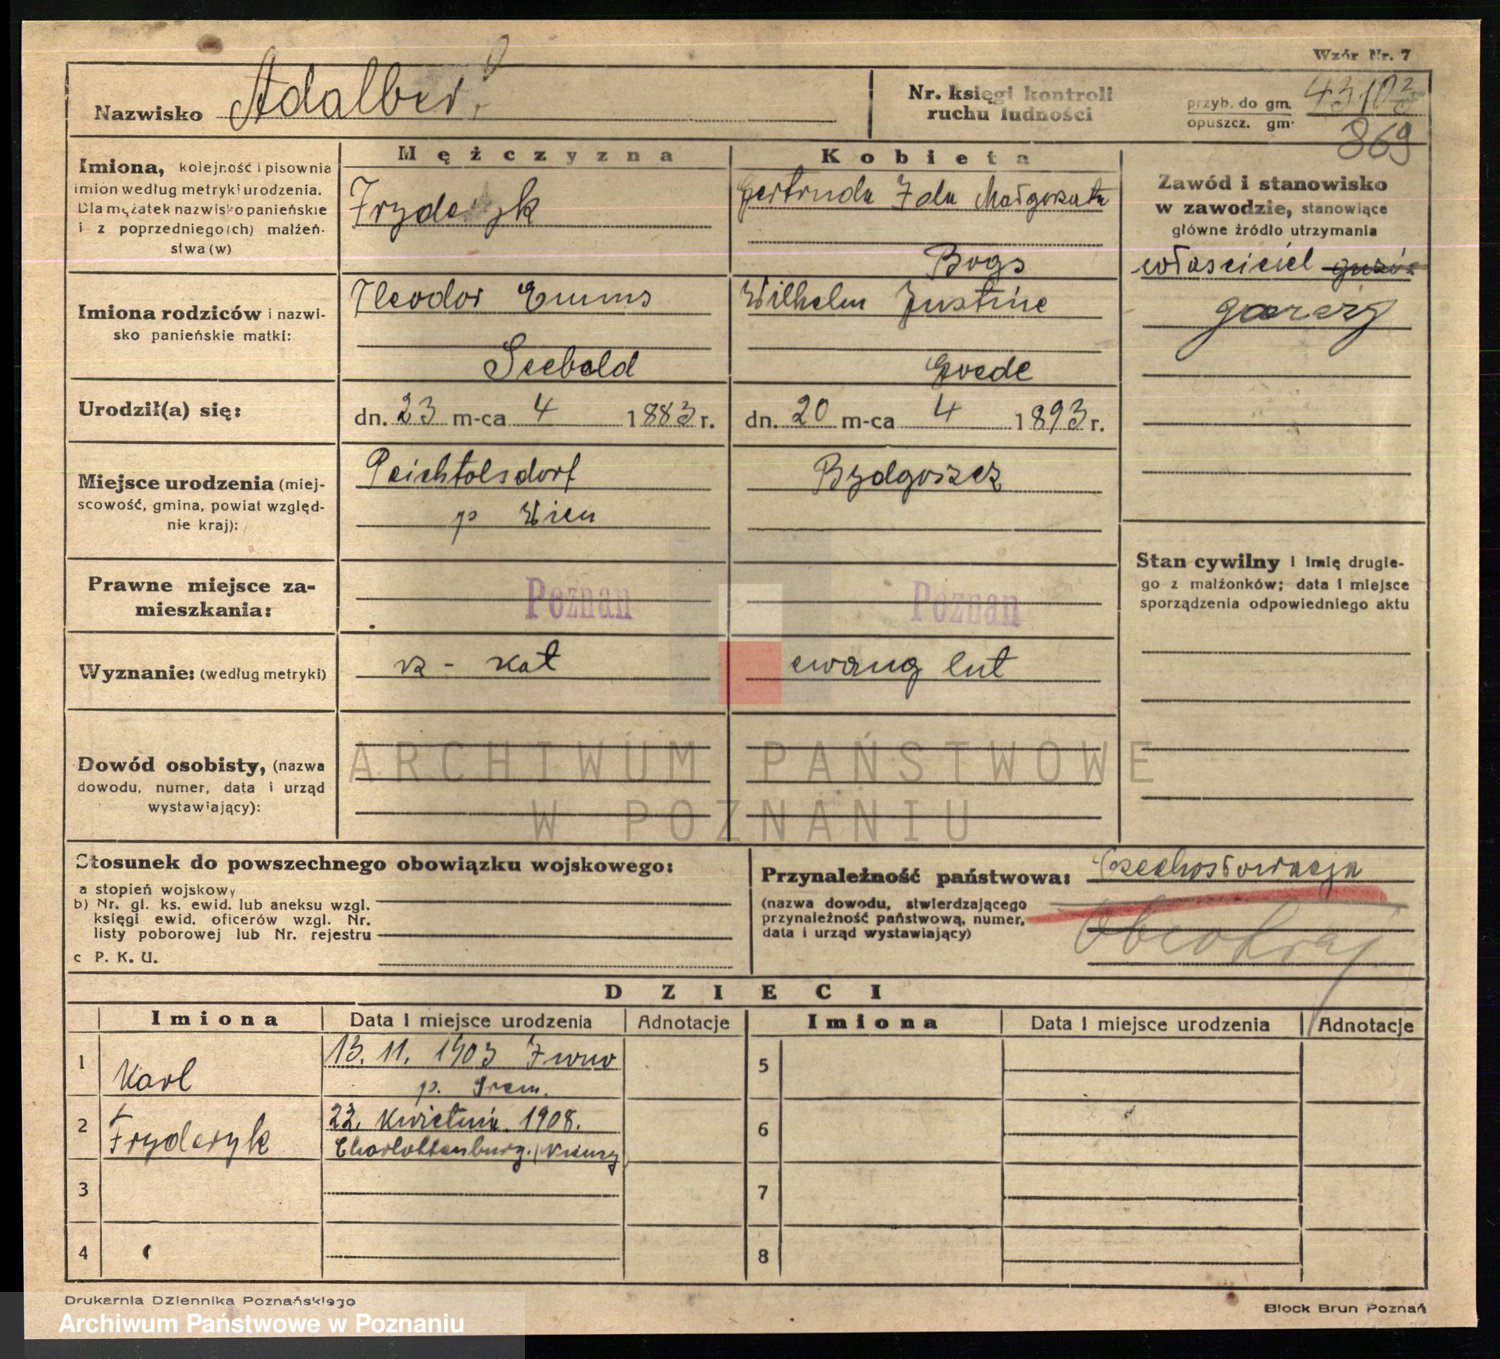 Wzór Nr. 7
Nazwisko Adalber
Nr. księgi kontroli
ruchu ludności
przyb. do gm. 43103
opuszcz. gm. 369
Imiona, kolejność i pisownia
imion według metryki urodzenia.
Dla mężatek nazwisko panieńskie
i z poprzedniego(ch) małżeń-
stwa(w)
Mężczyzna
Fryderyk
Kobieta
Gertruda Ida Małgorzata
Bogs
Zawód i stanowisko
w zawodzie, stanowiące
główne źródło utrzymania
właściciel
Imiona rodziców i nazwi-
sko panieńskie matki:
Teodor Emms
Seebold
Wilhelm Justine
Goede
Urodził(a) się:
dn. 23 m-ca 4 1883 r.
dn. 20 m-ca 4 1893 r.
Miejsce urodzenia (miej-
scowość, gmina, powiat względ-
nie kraj):
Peichtolsdorf
p Wien
Bydgoszcz
Prawne miejsce za-
mieszkania:
Poznań
Poznań
Stan cywilny i imię drugie-
go z małżonków; data i miejsce
sporządzenia odpowiedniego aktu
Wyznanie: (według metryki)
rz - kat
ewang lut
Dowód osobisty, (nazwa
dowodu, numer, data i urząd
wystawiający):
ARCHIWUM PAŃSTWOWE
W POZNANIU
Stosunek do powszechnego obowiązku wojskowego:
a stopień wojskowy
b) Nr. gl. ks. ewid. lub aneksu wzgl.
księgi ewid. oficerów wzgl. Nr.
listy poborowej lub Nr. rejestru
c P. K. U.
Przynależność państwowa: Czechosłowacja
(nazwa dowodu, stwierdzającego
przynależność państwową, numer,
data i urząd wystawiający)
DZIECI
Imiona Data i miejsce urodzenia Adnotacje Imiona Data i miejsce urodzenia Adnotacje
1 Karl 13. 11. 1903
p. Srem.
2 Fryderyk 22. Kwietnia 1908.
Charlottenburg.
3
4
5
6
7
8
Drukarnia Dziennika Poznańskiego
Block Brun Poznań
Archiwum Państwowe w Poznaniu